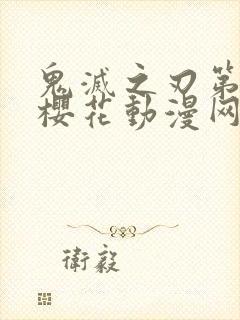 鬼滅之刃第
櫻花動漫网
衛毅